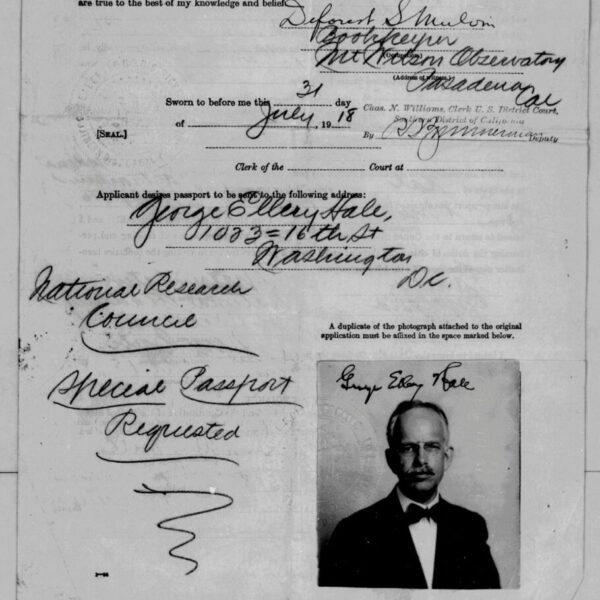 are true to the best of my knowledge and belief.
Deforest S Mulvin
Bookkeeper
Mt Wilson Observatory
(Address of witness.)
Pasadena
Cal
Sworn to before me this 31 day
Chas. N. Williams, Clerk U. S. District Court,
Southern District of California
of July, 1918
[SEAL.]
By Zimmerman
Deputy
Clerk of the Court at
Applicant desires passport to be sent to the following address:
George Ellery Hale,
1023=16th St
Washington
D.C.
National Research
Council
A duplicate of the photograph attached to the original
application must be affixed in the space marked below.
Special Passport
Requested
George Ellery Hale